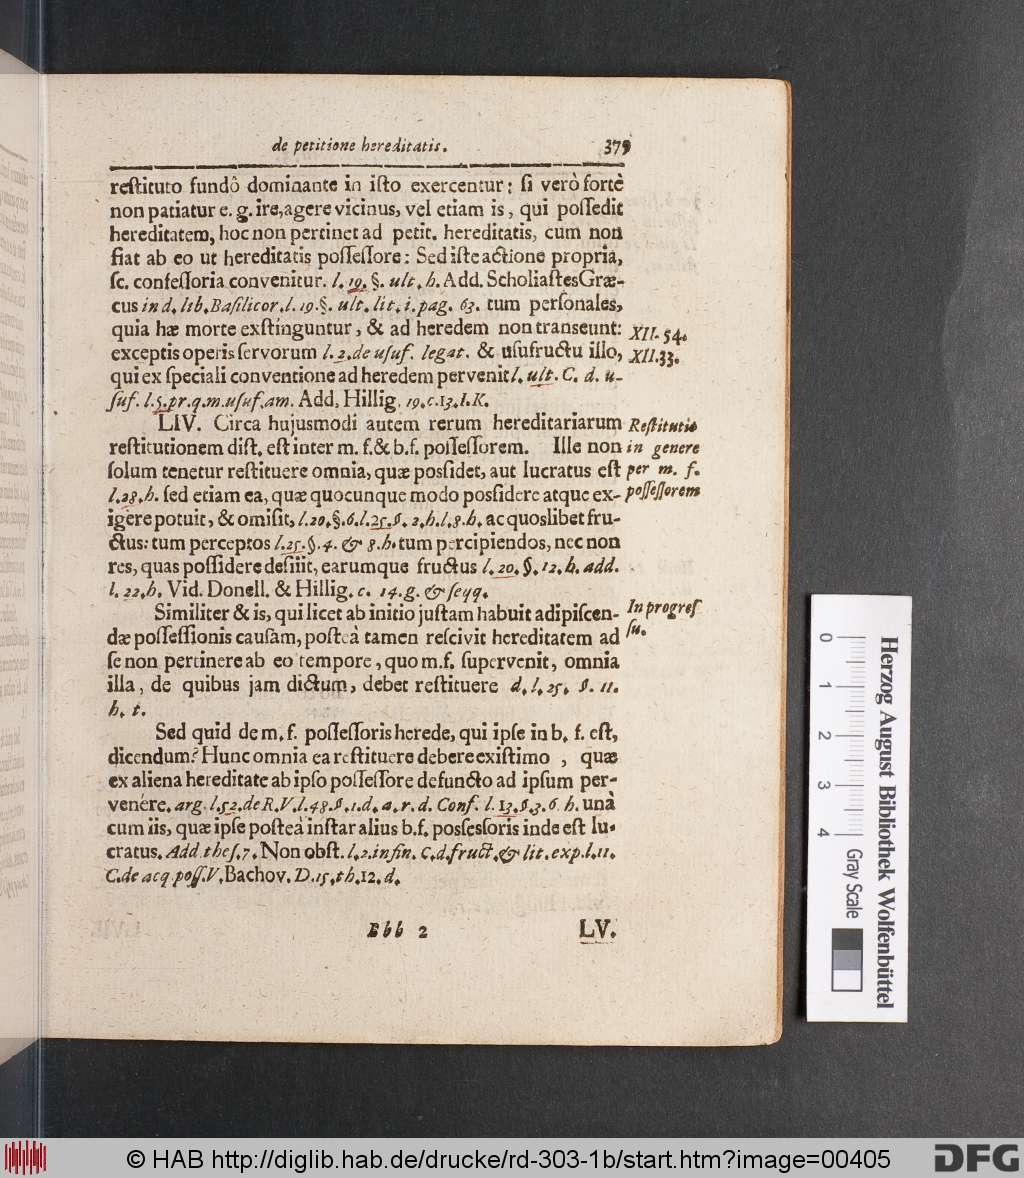 de petitione hereditatis. 379
reſtituto fundô dominante in iſto exercentur: ſi verò fortè
non patiatur e. g. ire, agere vicinus, vel etiam is, qui poſſedit
hereditatem, hoc non pertinet ad petit. hereditatis, cum non
fiat ab eo ut hereditatis poſſeſſore: Sed iſte actione propriâ,
ſc. confeſſoria convenitur. l. 19. §. ult. h. Add. Scholiaſtes Græ-
cus in d. lib. Baſilicor. l. 19. §. ult. lit. i. pag. 63. tum perſonales,
quia hæ morte exſtinguntur, & ad heredem non transeunt:
XII. 54.
exceptis operis ſervorum l. 2. de uſuf. legat. & uſufructu illo,
XII. 33.
qui ex ſpeciali conventione ad heredem pervenit l. ult. C. d. u-
ſuf. l. 5. pr. q. m. uſuf. am. Add, Hillig. 19. c. 13. l. K.
LIV. Circa hujusmodi autem rerum hereditariarum
Reſtitutio
reſtitutionem diſt. eſt inter m. f. & b. f. poſſeſſorem. Ille non
in genere
ſolum tenetur reſtituere omnia, quæ poſſidet, aut lucratus eſt
per m. f.
l. 28. h. ſed etiam ea, quæ quocunque modo poſſidere atque ex-
poſſeſſorem
igere potuit, & omiſit, l. 20. §. 6. l. 25. §. 2. h. l. 8. h. ac quoslibet fru-
ctus: tum perceptos l. 25. §. 4. & 8. h. tum percipiendos, nec non
res, quas poſſidere deſiit, earumque fructus l. 20. §. 12. h. add.
l. 22. h. Vid. Donell. & Hillig. c. 14. g. & ſeqq.
Similiter & is, qui licet ab initio juſtam habuit adipiſcen-
In progreſ
dæ poſſeſſionis cauſam, poſteà tamen reſcivit hereditatem ad
ſu.
ſe non pertinere ab eo tempore, quo m. f. ſupervenit, omnia
illa, de quibus jam dictum, debet reſtituere d. l. 25. §. 11.
h. t.
Sed quid de m. f. poſſeſſoris herede, qui ipſe in b. f. eſt,
dicendum? Hunc omnia ea reſtituere debere exiſtimo, quæ
ex aliena hereditate ab ipſo poſſeſſore defuncto ad ipſum per-
venére. arg. l. 52. de R. V. l. 48. §. 1. d. a. r. d. Conf. l. 13. §. 3. 6. h. unà
cum iis, quæ ipſe poſteà inſtar alius b. f. poſseſſoris inde eſt lu-
cratus. Add. theſ. 7. Non obſt. l. 2. in fin. C. d. fruct. & lit. exp. l. 11.
C. de acq. poſſ. V. Bachov. D. 15. th. 12. d.
Bbb 2 LV.
0 1 2 3 4
Gray Scale
Herzog August Bibliothek Wolfenbüttel
© HAB http://diglib.hab.de/drucke/rd-303-1b/start.htm?image=00405
DFG